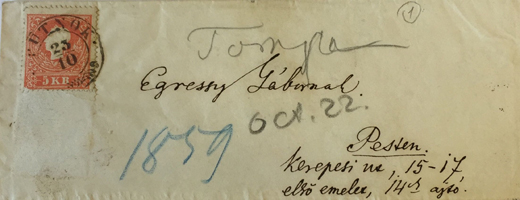 1
PUTNOK
23
10
5 KR
Tompa
Egressy Gábornak.
1859 Oct. 22.
Pesten.
Kerepesi ut, 15-17,
első emelet, 14ik ajtó.